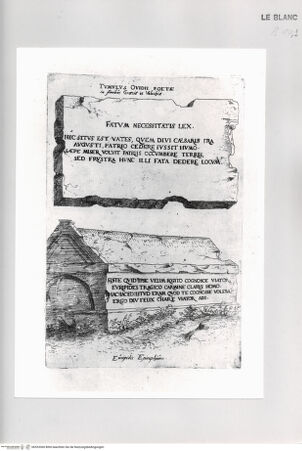 LE BLANC
TVMVLVS OVIDII POETAE
FATVM NECESSITATIS LEX.
HIC SITVS EST VATES, QVEM DIVI CAESARIS IRA
AVGVSTI, PATRIO CEDERE IVSSIT HVMO.
SAEPE MISER VOLVIT PATRIIS OCCVMBERE TERRIS,
SED FRVSTRA HVNC ILLI FATA DEDERE LOCVM.
SISTE QVID SIM VELIM COGNOSCE VIATOR
EVRIPIDES TRAGICO CARMINE CLARVS HOMO.
TE COGNOSSE VOLEBAM
ERGO DIV FELIX CHARE VIATOR ABI.
Euripidis Epitaphium